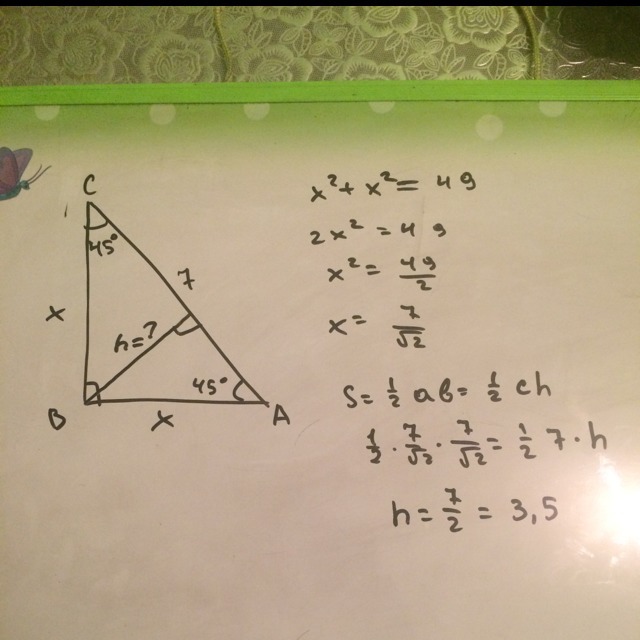 C
45°
7
x
h=?
45°
B
x
A
x² + x² = 49
2x² = 49
x² = 49/2
x = 7/√2
S = 1/2 ab = 1/2 ch
1/2 · 7/√2 · 7/√2 = 1/2 7 · h
h = 7/2 = 3,5